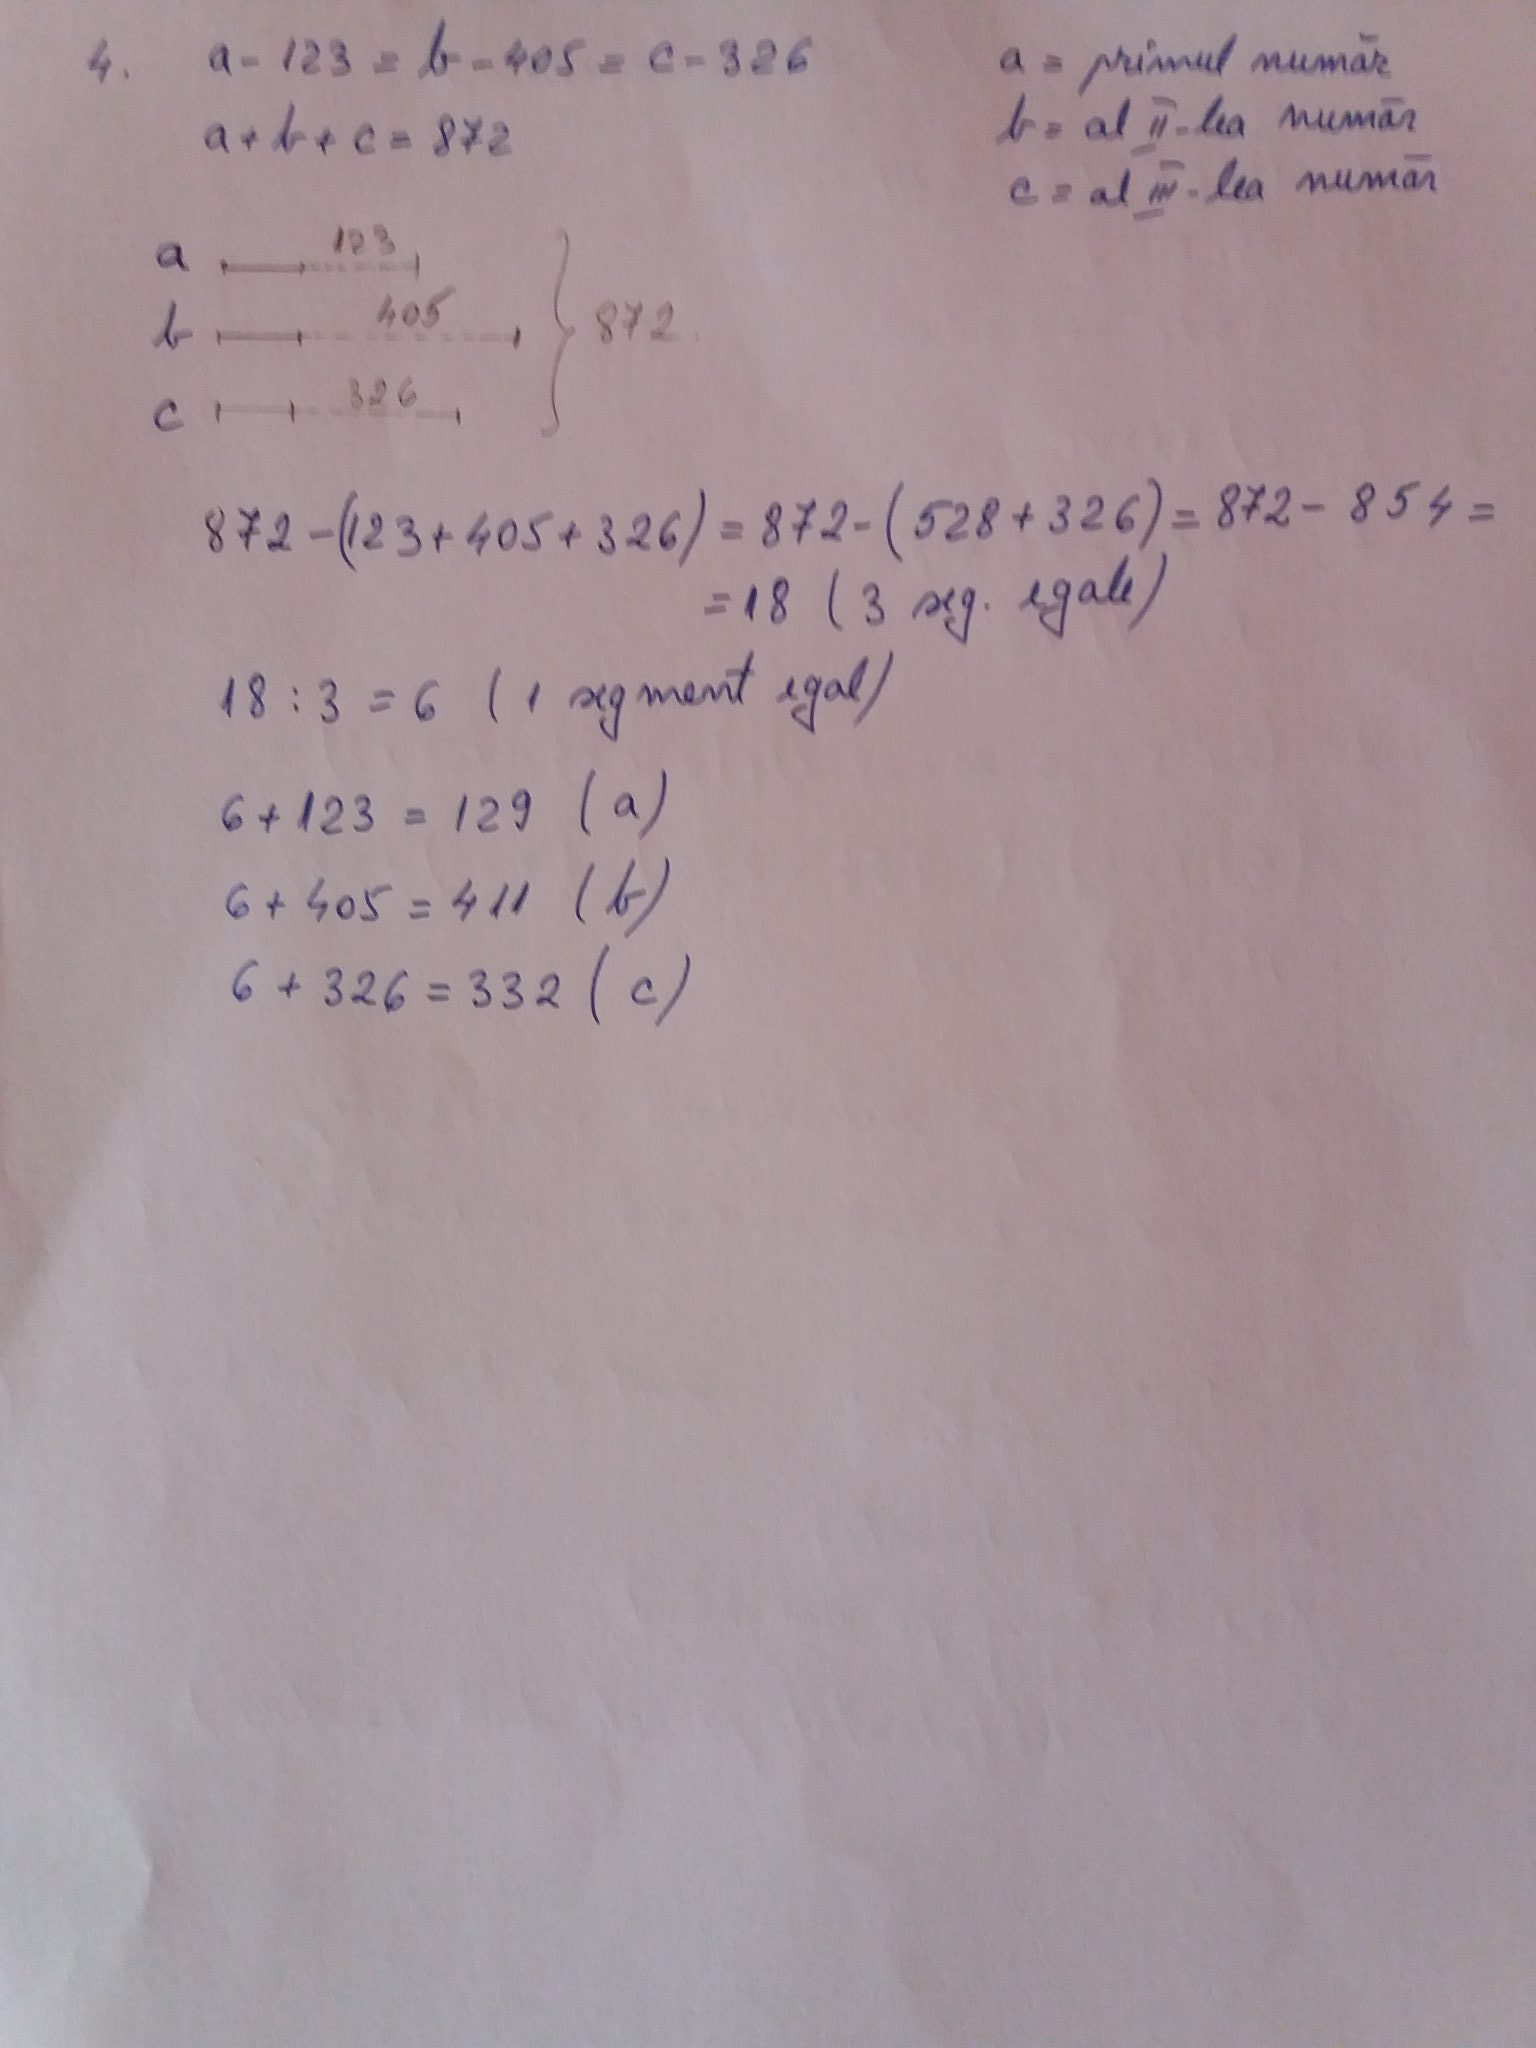 4. a - 123 = b - 405 = c - 326
a + b + c = 872
a = primul număr
b = al II-lea număr
c = al III-lea număr
a 123
b 405
c 326
872
872 - (123 + 405 + 326) = 872 - (528 + 326) = 872 - 854 =
= 18 (3 seg. egale)
18 : 3 = 6 (1 segment egal)
6 + 123 = 129 (a)
6 + 405 = 411 (b)
6 + 326 = 332 (c)